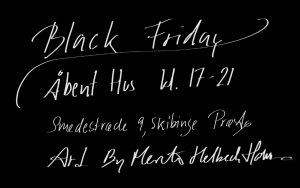 Black Friday
Åbent Hus kl. 17-21
Smedestræde 9, Skibinge Præstø
Art By Merete Helbech